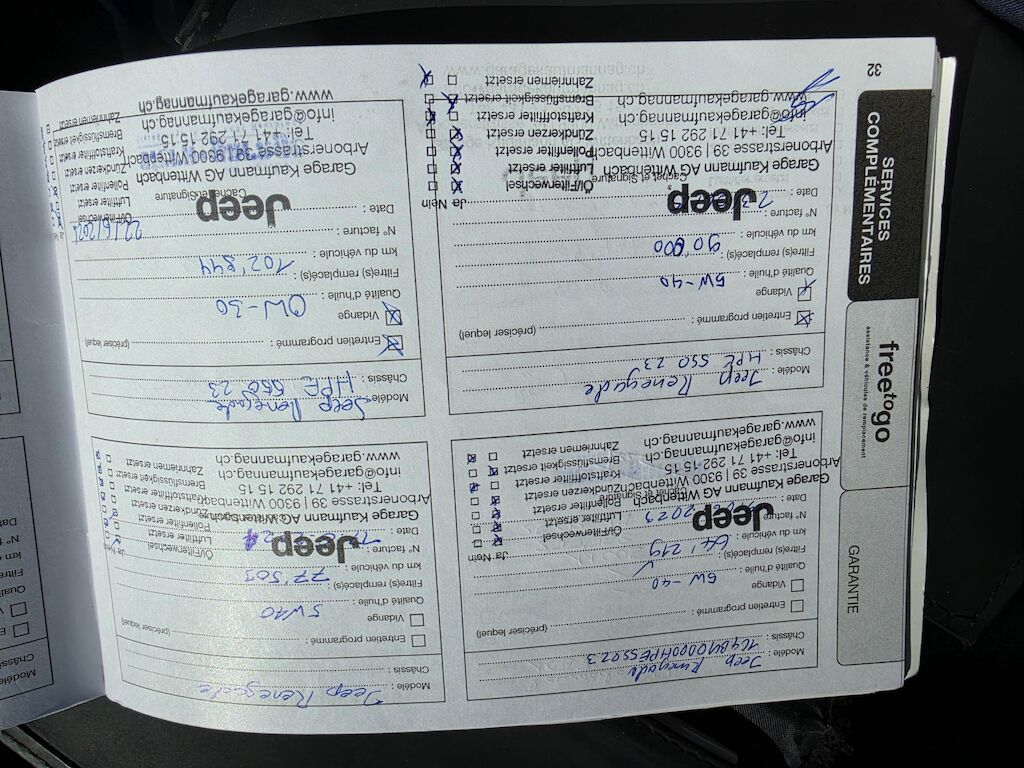 GARANTIE
freetogo
assistance & véhicules de remplacement
SERVICES
COMPLÉMENTAIRES
32
Modèle : Jeep Renegade
Châssis :
Entretien programmé : (préciser lequel)
Vidange
Qualité d'huile : 5W-40
Filtre(s) remplacé(s) :
km du véhicule : 64'219
N° facture :
Date : 2023
Cachet et Signature
Jeep
Ja Nein
Öl/Filterwechsel
Luftfilter ersetzt
Pollenfilter ersetzt
Zündkerzen ersetzt
Kraftstofffilter ersetzt
Bremsflüssigkeit ersetzt
Zahnriemen ersetzt
Garage Kaufmann AG Wittenbach
Arbonerstrasse 39 | 9300 Wittenbach
Tel: +41 71 292 15 15
info@garagekaufmannag.ch
www.garagekaufmannag.ch
Modèle : Jeep Renegade
Châssis :
Entretien programmé : (préciser lequel)
Vidange
Qualité d'huile : 5W40
Filtre(s) remplacé(s) :
km du véhicule : 77'505
N° facture :
Date :
Jeep
Ja Nein
Öl/Filterwechsel
Luftfilter ersetzt
Pollenfilter ersetzt
Zündkerzen ersetzt
Kraftstofffilter ersetzt
Bremsflüssigkeit ersetzt
Zahnriemen ersetzt
Garage Kaufmann AG Wittenbach
Arbonerstrasse 39 | 9300 Wittenbach
Tel: +41 71 292 15 15
info@garagekaufmannag.ch
www.garagekaufmannag.ch
Modèle : Jeep Renegade
Châssis : HPE 550 23
Entretien programmé : (préciser lequel)
Vidange
Qualité d'huile : 5W-40
Filtre(s) remplacé(s) :
km du véhicule : 90'000
N° facture :
Date :
Cachet et Signature
Jeep
Ja Nein
Öl/Filterwechsel
Luftfilter ersetzt
Pollenfilter ersetzt
Zündkerzen ersetzt
Kraftstofffilter ersetzt
Bremsflüssigkeit ersetzt
Zahnriemen ersetzt
Garage Kaufmann AG Wittenbach
Arbonerstrasse 39 | 9300 Wittenbach
Tel: +41 71 292 15 15
info@garagekaufmannag.ch
www.garagekaufmannag.ch
Modèle : Jeep Renegade
Châssis : HPE 550 23
Entretien programmé : (préciser lequel)
Vidange
Qualité d'huile : 0W-30
Filtre(s) remplacé(s) :
km du véhicule : 102'844
N° facture :
Date :
Cachet et Signature
Jeep
Öl/Filterwechsel
Luftfilter ersetzt
Pollenfilter ersetzt
Zündkerzen ersetzt
Kraftstofffilter ersetzt
Bremsflüssigkeit ersetzt
Zahnriemen ersetzt
Garage Kaufmann AG Wittenbach
Arbonerstrasse 39 | 9300 Wittenbach
Tel: +41 71 292 15 15
info@garagekaufmannag.ch
www.garagekaufmannag.ch